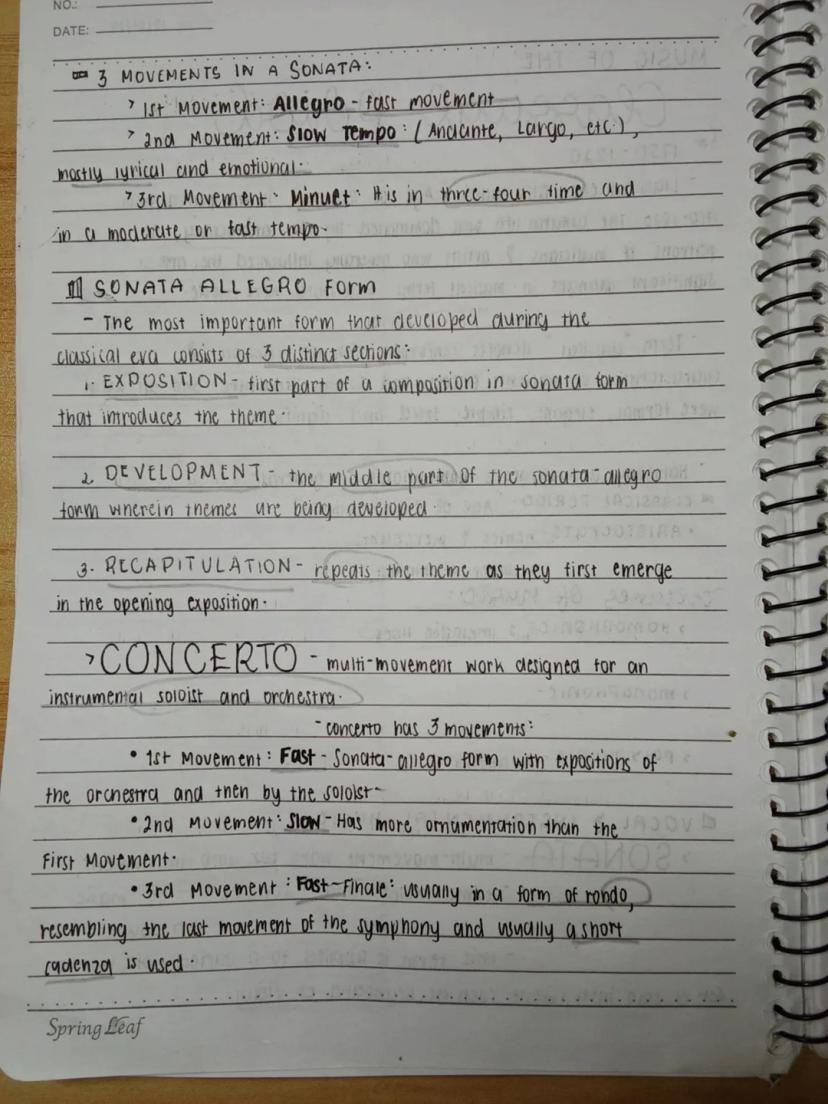 NO.:
DATE:
3 MOVEMENTS IN A SONATA:
> 1st Movement: Allegro - fast movement
> 2nd Movement: Slow Tempo: (Andante, Largo, etc.),
mostly lyrical and emotional.
> 3rd Movement: Minuet: It is in three-four time and
in a moderate or fast tempo.
SONATA ALLEGRO Form
- The most important form that developed during the
classical era consists of 3 distinct sections:
1. EXPOSITION - first part of a composition in sonata form
that introduces the theme.
2. DEVELOPMENT - the middle part of the sonata-allegro
form wherein themes are being developed.
3. RECAPITULATION - repeats the theme as they first emerge
in the opening exposition.
> CONCERTO - multi-movement work designed for an
instrumental soloist and orchestra.
- concerto has 3 movements:
• 1st Movement: Fast - Sonata-allegro form with expositions of
the orchestra and then by the soloist-
• 2nd Movement: Slow - Has more ornumentation than the
First Movement.
• 3rd Movement: Fast - Finale: usually in a form of rondo,
resembling the last movement of the symphony and usually a short
cadenza is used.
Spring Leaf